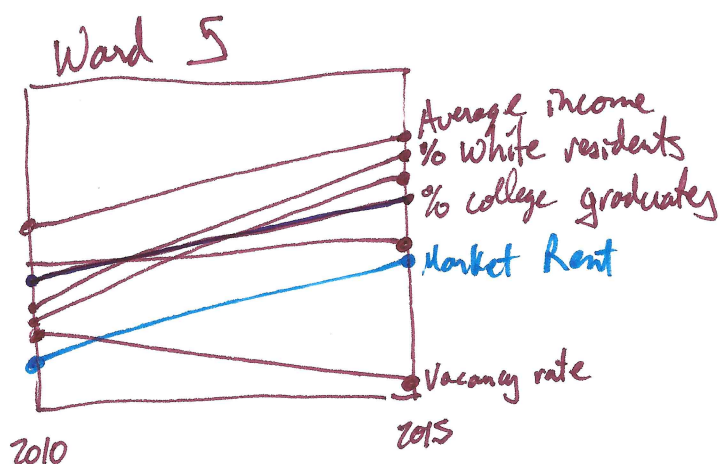 Ward 5
Average income
% white residents
% college graduates
Market Rent
Vacancy rate
2010
2015